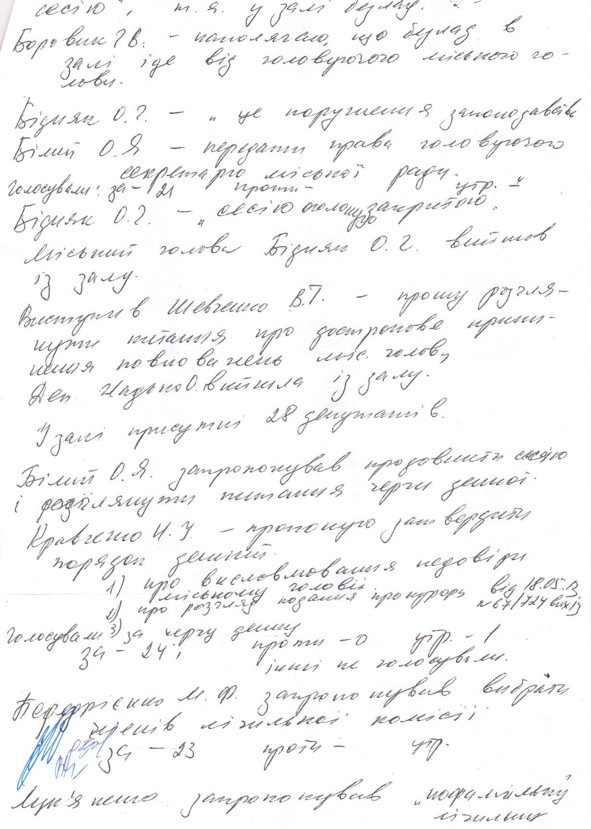 сесію", т.я. у залі безлад.
Боровик Г.В. - наполягаю, що безлад в
залі іде від головуючого міського го-
лови.
Бідняк О.Г. - „це порушення законодавства
Білий О.Я - передати права головуючого
секретарю міської ради.
Голосували: за - 21 проти - утр. -
Бідняк О.Г. - „сесію оголошую закритою."
Міський голова Бідняк О.Г. вийшов
із залу.
Виступив Шевченко В.Г. - прошу розгля-
нути питання про дострокове припи-
нення повноважень міс. голови
Деп вийшла із залу.
У залі присутні 28 депутатів.
Білий О.Я. запропонував продовжити сесію
і розглянути питання черги денної.
Кравченко Н.У. - пропоную затвердити
порядок денний.
1) про висловлювання недовіри
міському голові.
2) про розгляд подання прокурора від 18.05.12
№ 67/1724
Голосували за чергу денну
за - 24; проти - 0 утр. - 1
інші не голосували.
М.Ф. запропонував вибрати
членів лічильної комісії
за - 23 проти - утр.
Лук'яненко запропонував
лічильну